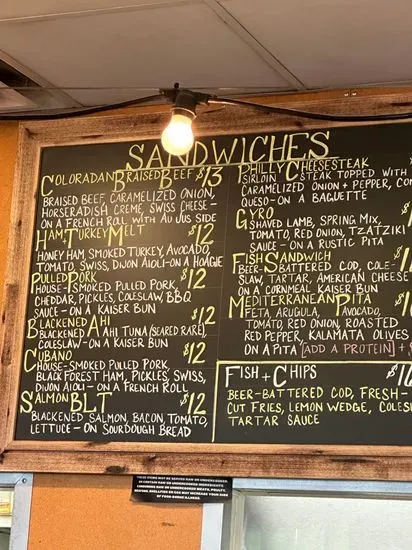 SANDWICHES
COLORADAN BRAISED BEEF $13
BRAISED BEEF, CARAMELIZED ONION,
HORSERADISH CREME, SWISS CHEESE -
ON A FRENCH ROLL WITH AU JUS SIDE
HAM + TURKEY MELT $12
HONEY HAM, SMOKED TURKEY, AVOCADO,
TOMATO, SWISS, DIJON AIOLI - ON A HOAGIE
PULLED PORK $12
HOUSE-SMOKED PULLED PORK,
CHEDDAR, PICKLES, COLESLAW, B.B.Q.
SAUCE - ON A KAISER BUN
BLACKENED AHI $12
BLACKENED AHI TUNA (SEARED RARE),
COLESLAW - ON A KAISER BUN
CUBANO $12
HOUSE-SMOKED PULLED PORK,
BLACK FOREST HAM, PICKLES, SWISS,
DIJON AIOLI - ON A FRENCH ROLL
SALMON BLT $12
BLACKENED SALMON, BACON, TOMATO,
LETTUCE - ON SOURDOUGH BREAD
PHILLY CHEESESTEAK
SIRLOIN STEAK TOPPED WITH
CARAMELIZED ONION + PEPPER,
QUESO - ON A BAGUETTE
GYRO
SHAVED LAMB, SPRING MIX,
TOMATO, RED ONION, TZATZIKI
SAUCE - ON A RUSTIC PITA
FISH SANDWICH
BEER-BATTERED COD, COLE-
SLAW, TARTAR, AMERICAN CHEESE
A CORNMEAL KAISER BUN
MEDITERRANEAN PITA
FETA, ARUGULA, AVOCADO,
TOMATO, RED ONION, ROASTED
RED PEPPER, KALAMATA OLIVES
ON A PITA [ADD A PROTEIN] +$
FISH + CHIPS
BEER-BATTERED COD, FRESH-
CUT FRIES, LEMON WEDGE, COLES
TARTAR SAUCE
THESE ITEMS MAY BE SERVED RAW OR UNDERCOOKED,
OR CONTAIN RAW OR UNDERCOOKED INGREDIENTS.
CONSUMING RAW OR UNDERCOOKED MEATS, POULTRY,
SEAFOOD, SHELLFISH OR EGGS MAY INCREASE YOUR RISK
OF FOOD-BORNE ILLNESS.